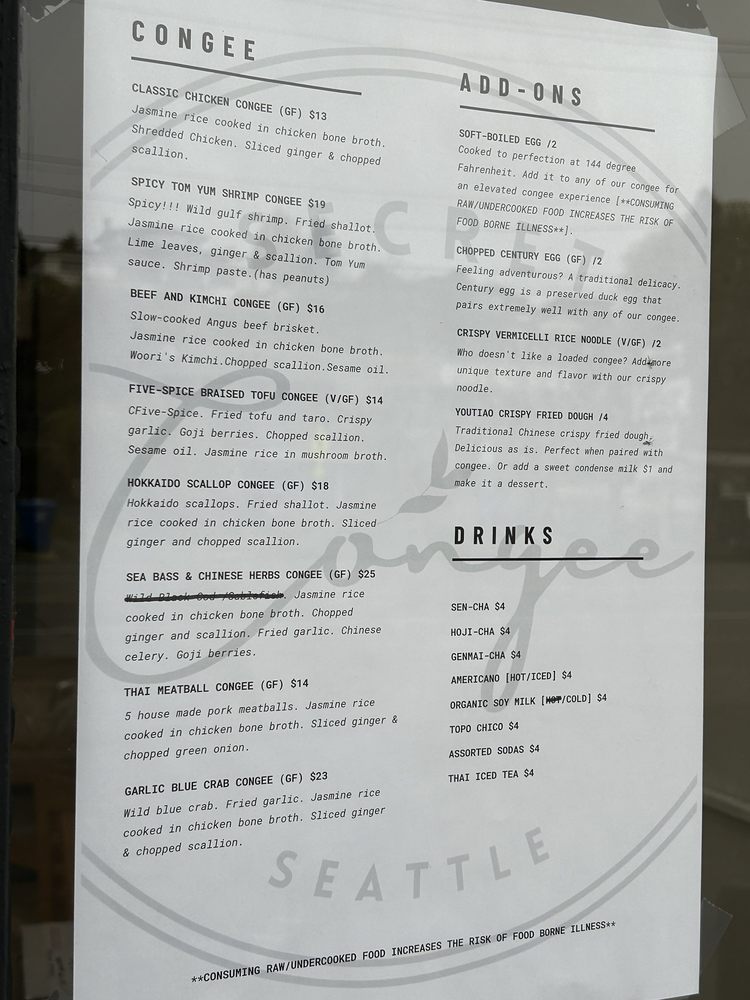 CONGEE
CLASSIC CHICKEN CONGEE (GF) $13
Jasmine rice cooked in chicken bone broth.
Shredded Chicken. Sliced ginger & chopped
scallion.
SPICY TOM YUM SHRIMP CONGEE $19
Spicy!!! Wild gulf shrimp. Fried shallot.
Jasmine rice cooked in chicken bone broth.
Lime leaves, ginger & scallion. Tom Yum
sauce. Shrimp paste.(has peanuts)
BEEF AND KIMCHI CONGEE (GF) $16
Slow-cooked Angus beef brisket.
Jasmine rice cooked in chicken bone broth.
Woori's Kimchi.Chopped scallion.Sesame oil.
FIVE-SPICE BRAISED TOFU CONGEE (V/GF) $14
CFive-Spice. Fried tofu and taro. Crispy
garlic. Goji berries. Chopped scallion.
Sesame oil. Jasmine rice in mushroom broth.
HOKKAIDO SCALLOP CONGEE (GF) $18
Hokkaido scallops. Fried shallot. Jasmine
rice cooked in chicken bone broth. Sliced
ginger and chopped scallion.
SEA BASS & CHINESE HERBS CONGEE (GF) $25
Wild Black Cod /Sablefish. Jasmine rice
cooked in chicken bone broth. Chopped
ginger and scallion. Fried garlic. Chinese
celery. Goji berries.
THAI MEATBALL CONGEE (GF) $14
5 house made pork meatballs. Jasmine rice
cooked in chicken bone broth. Sliced ginger &
chopped green onion.
GARLIC BLUE CRAB CONGEE (GF) $23
Wild blue crab. Fried garlic. Jasmine rice
cooked in chicken bone broth. Sliced ginger
& chopped scallion.
ADD-ONS
SOFT-BOILED EGG /2
Cooked to perfection at 144 degree
Fahrenheit. Add it to any of our congee for
an elevated congee experience [**CONSUMING
RAW/UNDERCOOKED FOOD INCREASES THE RISK OF
FOOD BORNE ILLNESS**].
CHOPPED CENTURY EGG (GF) /2
Feeling adventurous? A traditional delicacy.
Century egg is a preserved duck egg that
pairs extremely well with any of our congee.
CRISPY VERMICELLI RICE NOODLE (V/GF) /2
Who doesn't like a loaded congee? Add more
unique texture and flavor with our crispy
noodle.
YOUTIAO CRISPY FRIED DOUGH /4
Traditional Chinese crispy fried dough.
Delicious as is. Perfect when paired with
congee. Or add a sweet condense milk $1 and
make it a dessert.
DRINKS
SEN-CHA $4
HOJI-CHA $4
GENMAI-CHA $4
AMERICANO [HOT/ICED] $4
ORGANIC SOY MILK [HOT/COLD] $4
TOPO CHICO $4
ASSORTED SODAS $4
THAI ICED TEA $4
SECRET
Congee
SEATTLE
**CONSUMING RAW/UNDERCOOKED FOOD INCREASES THE RISK OF FOOD BORNE ILLNESS**